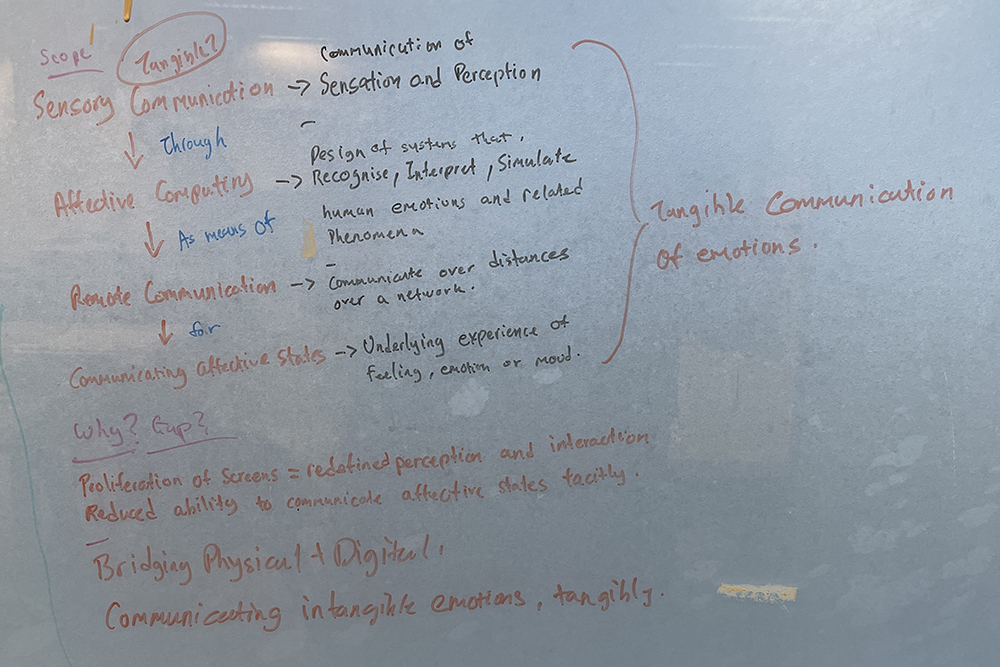 Scope
Tangible?
Communication of
Sensory Communication → Sensation and Perception
↓ Through
Design of systems that.
Affective Computing → Recognise, Interpret, Simulate
human emotions and related
Phenomena
↓ As means of
Remote Communication → Communicate over distances
over a network.
↓ for
Communicating affective states → Underlying experience of
feeling, emotion or mood.
Tangible Communication
of emotions.
Why? Gap?
Proliferation of screens = redefined perception and interaction
Reduced ability to communicate affective states tacitly.
Bridging Physical + Digital.
Communicating intangible emotions, tangibly.